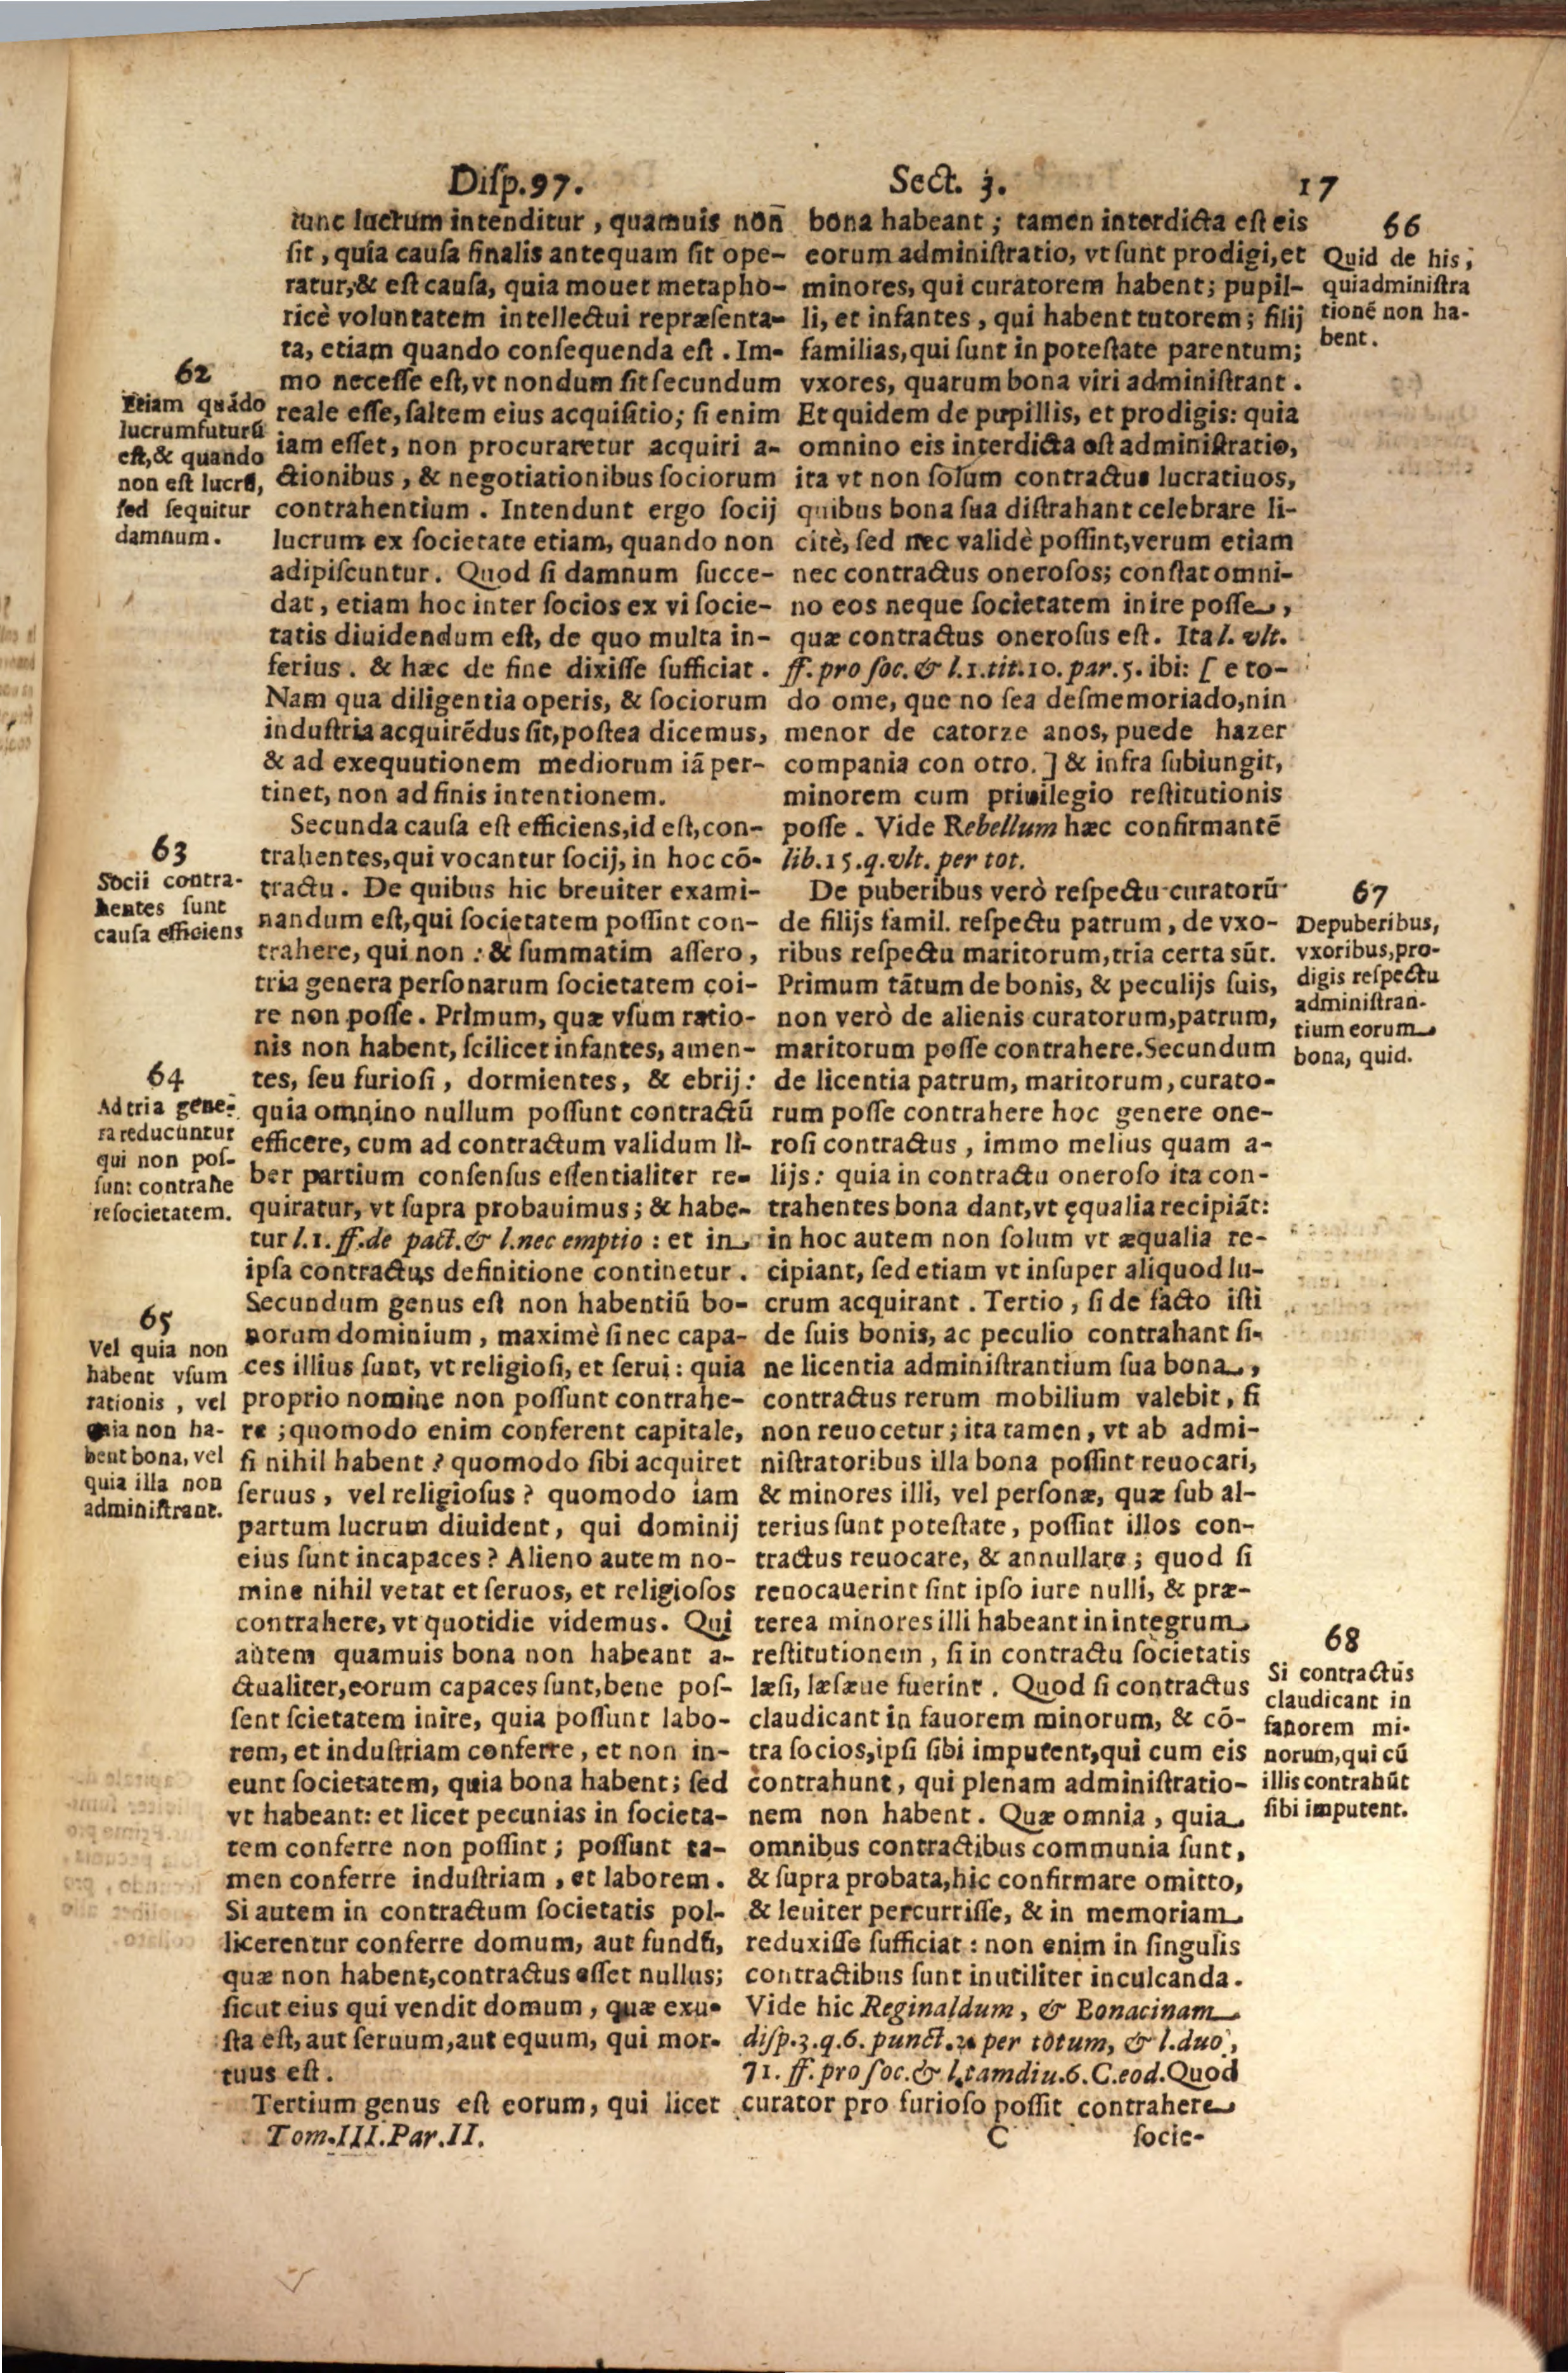 Disp.97. Sect. 3. 17
tunc lucrum intenditur, quamuis non̄
sit, quia causa finalis antequam sit ope-
ratur, & est causa, quia mouet metapho-
ricè voluntatem intellectui repræsenta-
ta, etiam quando consequenda est. Im-
mo necesse est, vt nondum sit secundum
reale esse, saltem eius acquisitio; si enim
iam esset, non procuraretur acquiri a-
ctionibus, & negotiationibus sociorum
contrahentium. Intendunt ergo socij
lucrum ex societate etiam, quando non
adipiscuntur. Quod si damnum succe-
dat, etiam hoc inter socios ex vi socie-
tatis diuidendum est, de quo multa in-
ferius. & hæc de fine dixisse sufficiat.
Nam qua diligentia operis, & sociorum
industria acquirẽdus sit, postea dicemus,
& ad exequutionem mediorum iã per-
tinet, non ad finis intentionem.
Secunda causa est efficiens, id est, con-
trahentes, qui vocantur socij, in hoc cõ-
tractu. De quibus hic breuiter exami-
nandum est, qui societatem possint con-
trahere, qui non: & summatim assero,
tria genera personarum societatem coi-
re non posse. Primum, quæ vsum ratio-
nis non habent, scilicet infantes, amen-
tes, seu furiosi, dormientes, & ebrij:
quia omnino nullum possunt contractũ
efficere, cum ad contractum validum li-
ber partium consensus essentialiter re-
quiratur, vt supra probauimus; & habe-
tur l.1. ff. de pact. & l. nec emptio: et in
ipsa contractus definitione continetur.
Secundum genus est non habentiũ bo-
norum dominium, maximè si nec capa-
ces illius sunt, vt religiosi, et serui: quia
proprio nomine non possunt contrahe-
re; quomodo enim conferent capitale,
si nihil habent? quomodo sibi acquiret
seruus, vel religiosus? quomodo iam
partum lucrum diuident, qui dominij
eius sunt incapaces? Alieno autem no-
mine nihil vetat et seruos, et religiosos
contrahere, vt quotidie videmus. Qui
autem quamuis bona non habeant a-
ctualiter, eorum capaces sunt, bene pos-
sent scietatem inire, quia possunt labo-
rem, et industriam conferre, et non in-
eunt societatem, quia bona habent; sed
vt habeant: et licet pecunias in societa-
tem conferre non possint; possunt ta-
men conferre industriam, et laborem.
Si autem in contractum societatis pol-
licerentur conferre domum, aut fundũ,
quæ non habent, contractus esset nullus;
sicut eius qui vendit domum, quæ exu-
sta est, aut seruum, aut equum, qui mor-
tuus est.
Tertium genus est eorum, qui licet
Tom.III.Par.II.
62
Etiam quãdo
lucrum futurũ
est, & quando
non est lucrũ,
sed sequitur
damnum.
63
Socii contra-
hentes sunt
causa efficiens
64
Ad tria gene-
ra reducuntur
qui non pos-
sunt contrahe
re societatem.
65
Vel quia non
habent vsum
rationis, vel
quia non ha-
bent bona, vel
quia illa non
administrant.
bona habeant; tamen interdicta est eis
eorum administratio, vt sunt prodigi, et
minores, qui curatorem habent; pupil-
li, et infantes, qui habent tutorem; filij
familias, qui sunt in potestate parentum;
vxores, quarum bona viri administrant.
Et quidem de pupillis, et prodigis: quia
omnino eis interdicta est administratio,
ita vt non solum contractus lucratiuos,
quibus bona sua distrahant celebrare li-
citè, sed nec validè possint, verum etiam
nec contractus onerosos; constat omni-
no eos neque societatem inire posse,
quæ contractus onerosus est. Ita l. vlt.
ff. pro soc. & l.1. tit.10. par.5. ibi: [ e to-
do ome, que no sea desmemoriado, nin
menor de catorze anos, puede hazer
compania con otro. ] & infra subiungit,
minorem cum priuilegio restitutionis
posse. Vide Rebellum hæc confirmantẽ
lib.15.q.vlt. per tot.
De puberibus verò respectu curatorũ
de filijs famil. respectu patrum, de vxo-
ribus respectu maritorum, tria certa sũt.
Primum tãtum de bonis, & peculijs suis,
non verò de alienis curatorum, patrum,
maritorum posse contrahere. Secundum
de licentia patrum, maritorum, curato-
rum posse contrahere hoc genere one-
rosi contractus, immo melius quam a-
lijs: quia in contractu oneroso ita con-
trahentes bona dant, vt ęqualia recipiãt:
in hoc autem non solum vt æqualia re-
cipiant, sed etiam vt insuper aliquod lu-
crum acquirant. Tertio, si de facto isti
de suis bonis, ac peculio contrahant si-
ne licentia administrantium sua bona,
contractus rerum mobilium valebit, si
non reuocetur; ita tamen, vt ab admi-
nistratoribus illa bona possint reuocari,
& minores illi, vel personæ, quæ sub al-
terius sunt potestate, possint illos con-
tractus reuocare, & annullare; quod si
reuocauerint sint ipso iure nulli, & præ-
terea minores illi habeant in integrum
restitutionem, si in contractu societatis
læsi, læsæue fuerint. Quod si contractus
claudicant in fauorem minorum, & cõ-
tra socios, ipsi sibi imputent, qui cum eis
contrahunt, qui plenam administratio-
nem non habent. Quæ omnia, quia
omnibus contractibus communia sunt,
& supra probata, hic confirmare omitto,
& leuiter percurrisse, & in memoriam
reduxisse sufficiat: non enim in singulis
contractibus sunt inutiliter inculcanda.
Vide hic Reginaldum, & Bonacinam
disp.3.q.6. punct.2. per totum, & l. duo,
71. ff. pro soc. & l. tamdiu.6. C. eod. Quod
curator pro furioso possit contrahere
C socie-
66
Quid de his,
qui administra
tionẽ non ha-
bent.
67
De puberibus,
vxoribus, pro-
digis respectu
administran-
tium eorum
bona, quid.
68
Si contractus
claudicant in
fauorem mi-
norum, qui cũ
illis contrahũt
sibi imputent.